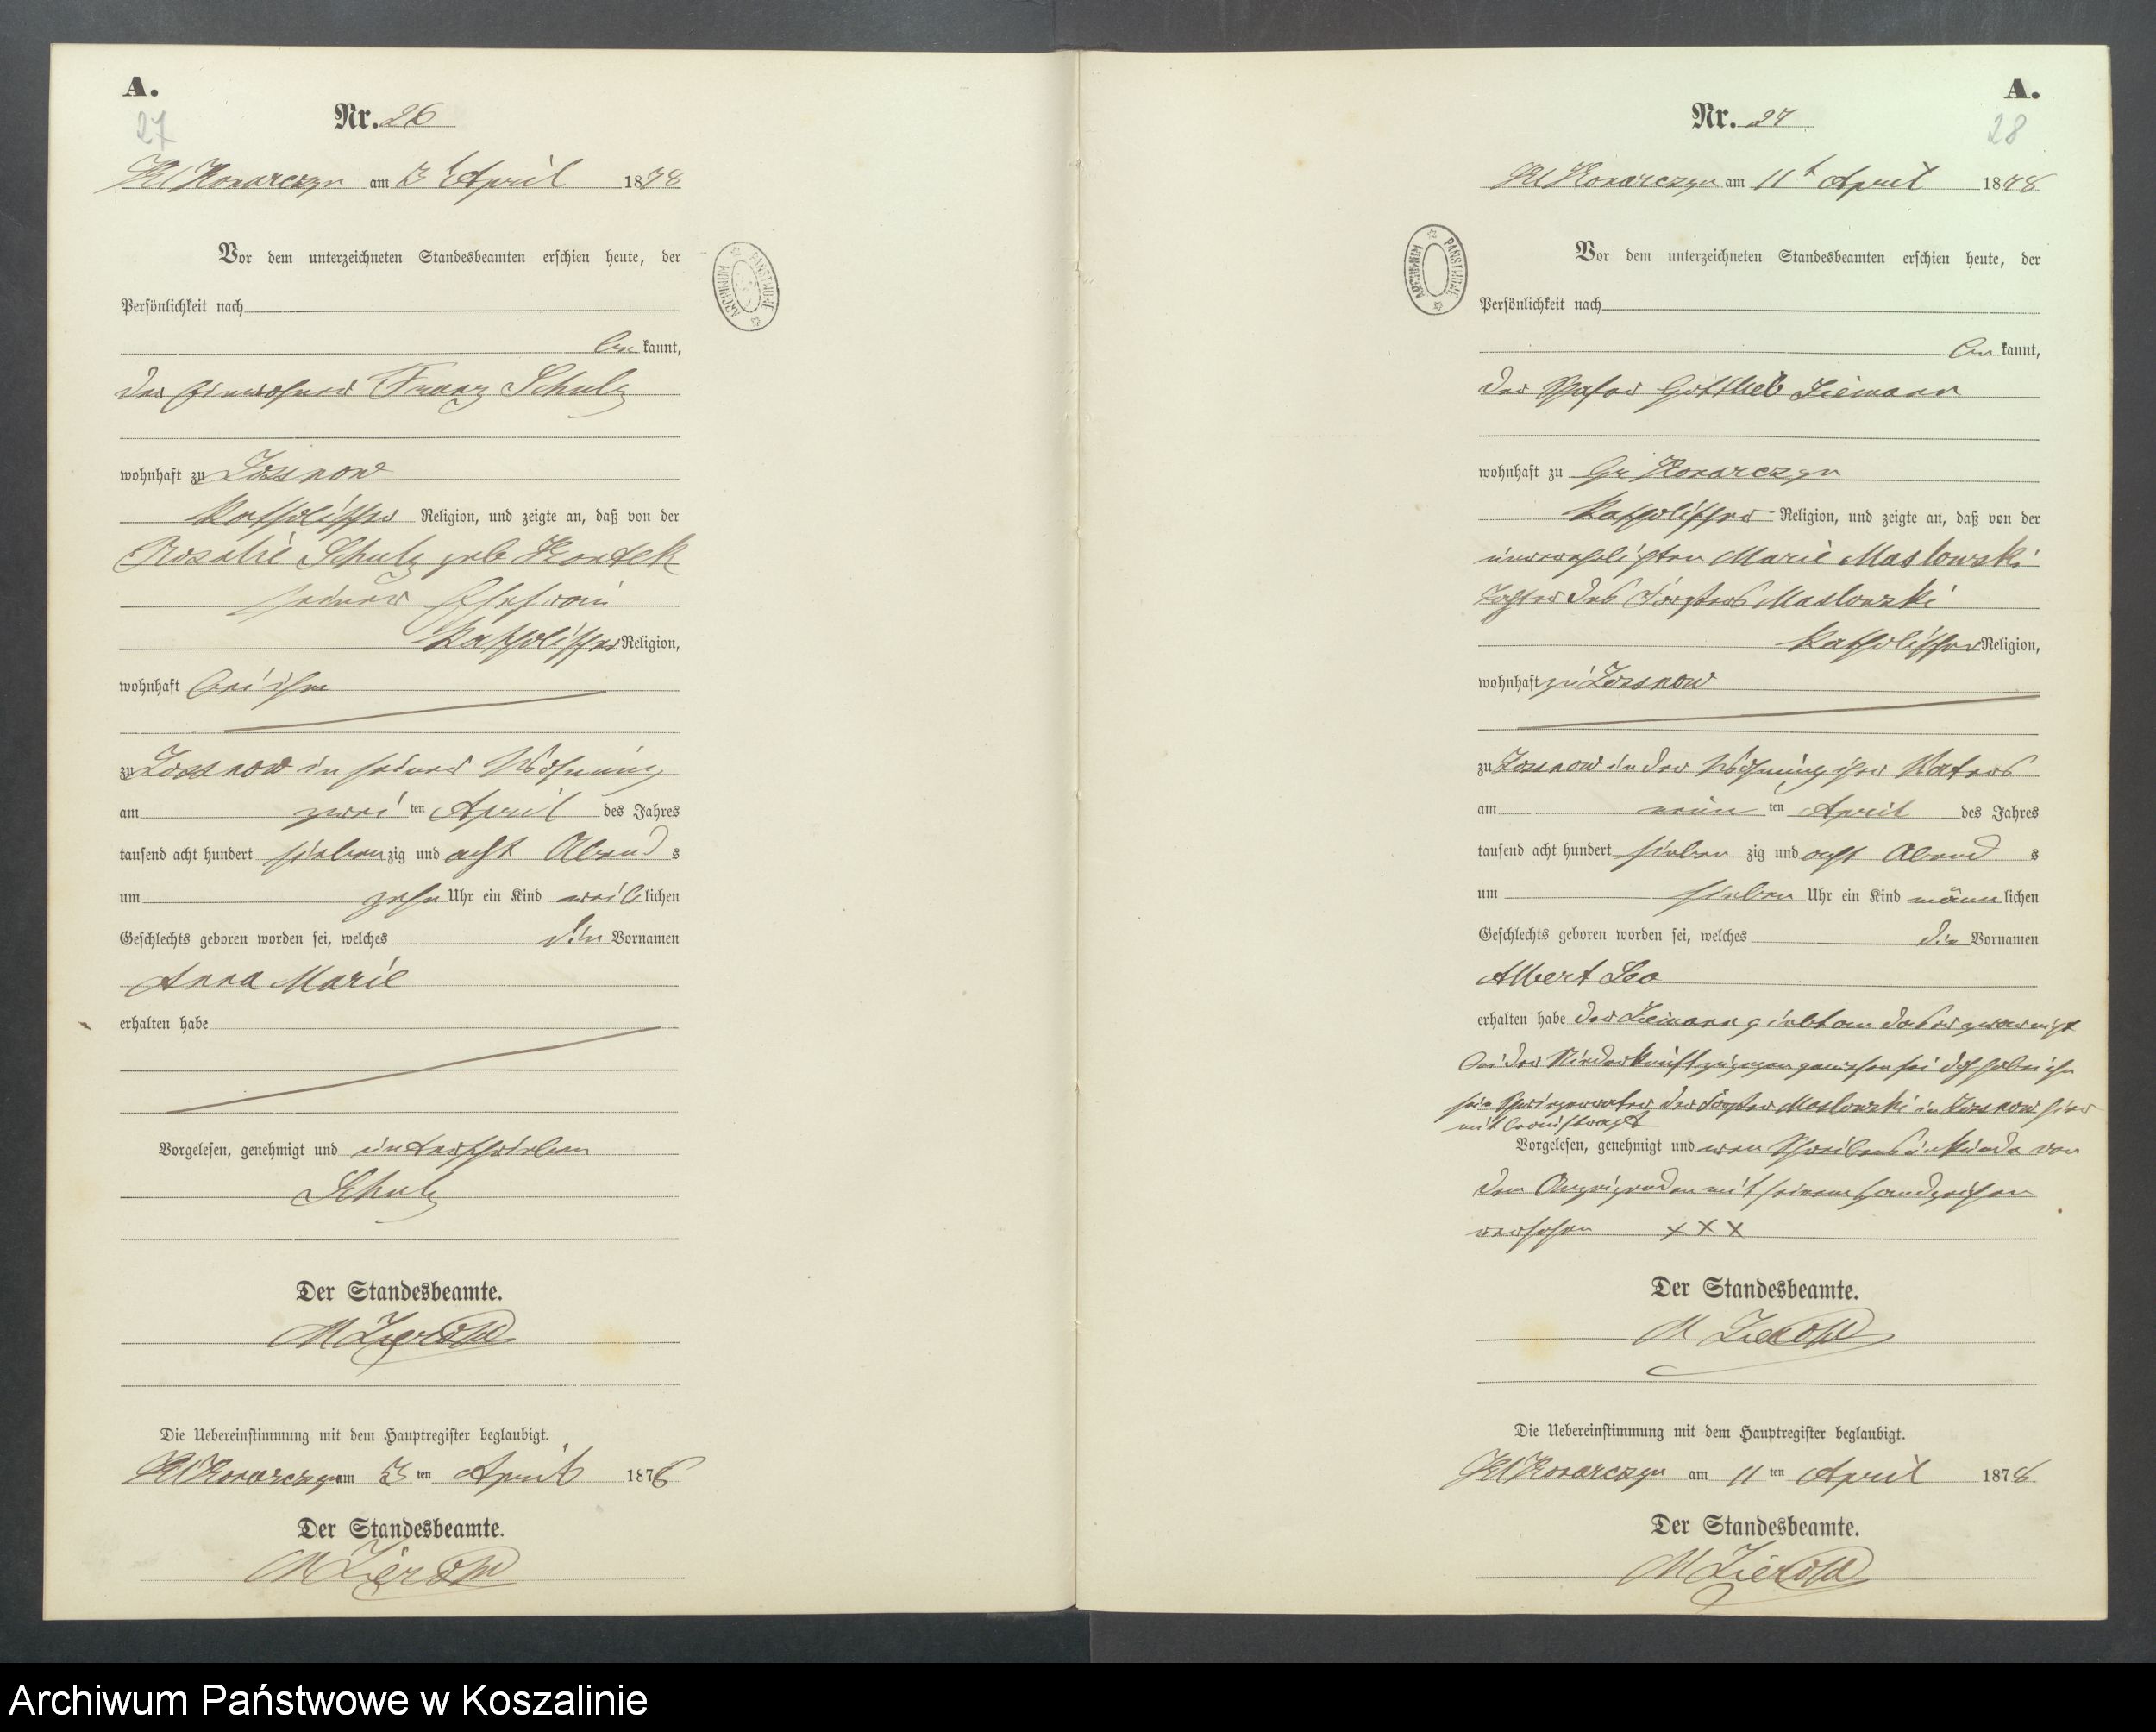 A.
27
Nr. 26
Kl Konarczyn am 3 t April 1878
Vor dem unterzeichneten Standesbeamten erschien heute, der
Persönlichkeit nach
be kannt,
der Einwohner Franz Schulz
wohnhaft zu Zossnow
katholischer Religion, und zeigte an, daß von der
Rosalie Schulz geb
seiner Ehefrau
katholischer Religion,
wohnhaft bei ihm
zu Zossnow in seiner Wohnung
am zwei ten April des Jahres
tausend acht hundert sieben zig und acht Abend s
um zehn Uhr ein Kind weib lichen
Geschlechts geboren worden sei, welches die Vornamen
Anna Marie
erhalten habe
Vorgelesen, genehmigt und unterschrieben
Schulz
Der Standesbeamte.
M Zierold
Die Uebereinstimmung mit dem Hauptregister beglaubigt.
Kl Konarczyn am 3 ten April 1878
Der Standesbeamte.
M Zierold
ARCHIWUM PAŃSTWOWE
A.
28
Nr. 27
Kl Konarczyn am 11 t April 1878
Vor dem unterzeichneten Standesbeamten erschien heute, der
Persönlichkeit nach
be kannt,
der Gottlieb Ziemann
wohnhaft zu Gr Konarczyn
katholischer Religion, und zeigte an, daß von der
unverehelichten Marie Maslowski
Tochter des Försters Maslowski
katholischer Religion,
wohnhaft zu Zossnow
zu Zossnow in der Wohnung ihres Vaters
am neun ten April des Jahres
tausend acht hundert sieben zig und acht Abend s
um sieben Uhr ein Kind männ lichen
Geschlechts geboren worden sei, welches die Vornamen
Albert Leo
erhalten habe der Ziemann giebt an daß er zwar nicht
bei der Niederkunft zugegen gewesen sei doch habe ihn
sein Schwiegervater der Förster Maslowski in Zossnow hier
mit beauftragt
Vorgelesen, genehmigt und wen Schreibensunkunde von
dem Anzeigenden mit seinem Handzeichen
versehen XXX
Der Standesbeamte.
M Zierold
Die Uebereinstimmung mit dem Hauptregister beglaubigt.
Kl Konarczyn am 11 ten April 1878
Der Standesbeamte.
M Zierold
ARCHIWUM PAŃSTWOWE
Archiwum Państwowe w Koszalinie